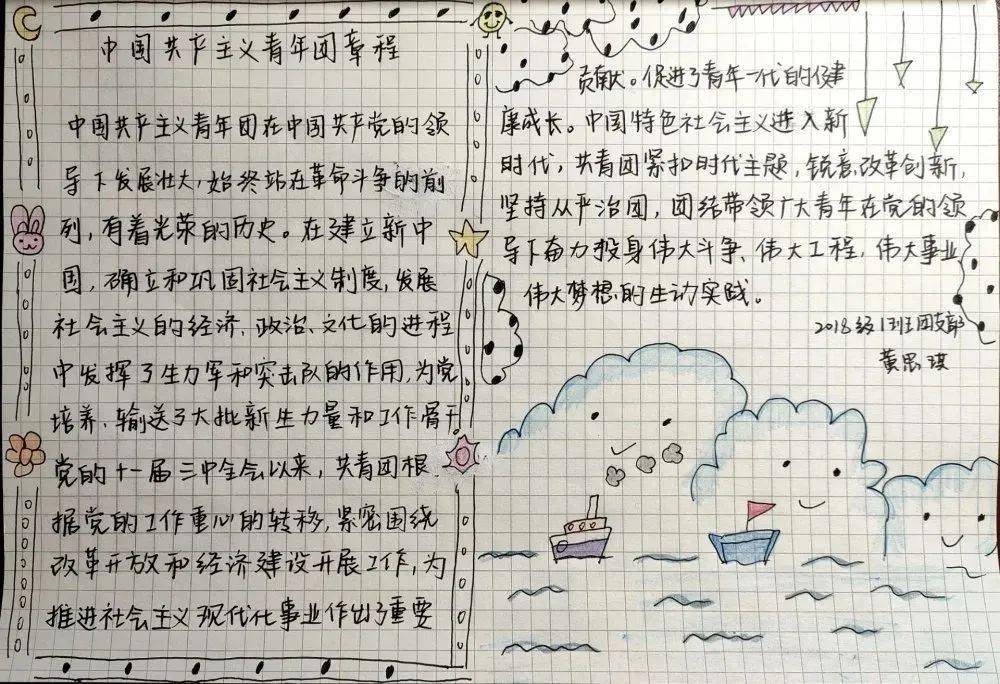 中国共产主义青年团章程
中国共产主义青年团在中国共产党的领
导下发展壮大,始终站在革命斗争的前
列,有着光荣的历史。在建立新中
国,确立和巩固社会主义制度,发展
社会主义的经济、政治、文化的进程
中发挥了生力军和突击队的作用,为党
培养、输送了大批新生力量和工作骨干
党的十一届三中全会以来,共青团根
据党的工作重心的转移,紧密围绕
改革开放和经济建设开展工作,为
推进社会主义现代化事业作出了重要
贡献。促进了青年一代的健
康成长。中国特色社会主义进入新
时代,共青团紧扣时代主题,锐意改革创新,
坚持从严治团,团结带领广大青年在党的领
导下奋力投身伟大斗争、伟大工程,伟大事业
伟大梦想的生动实践。
2018级1班团支部
黄思琪